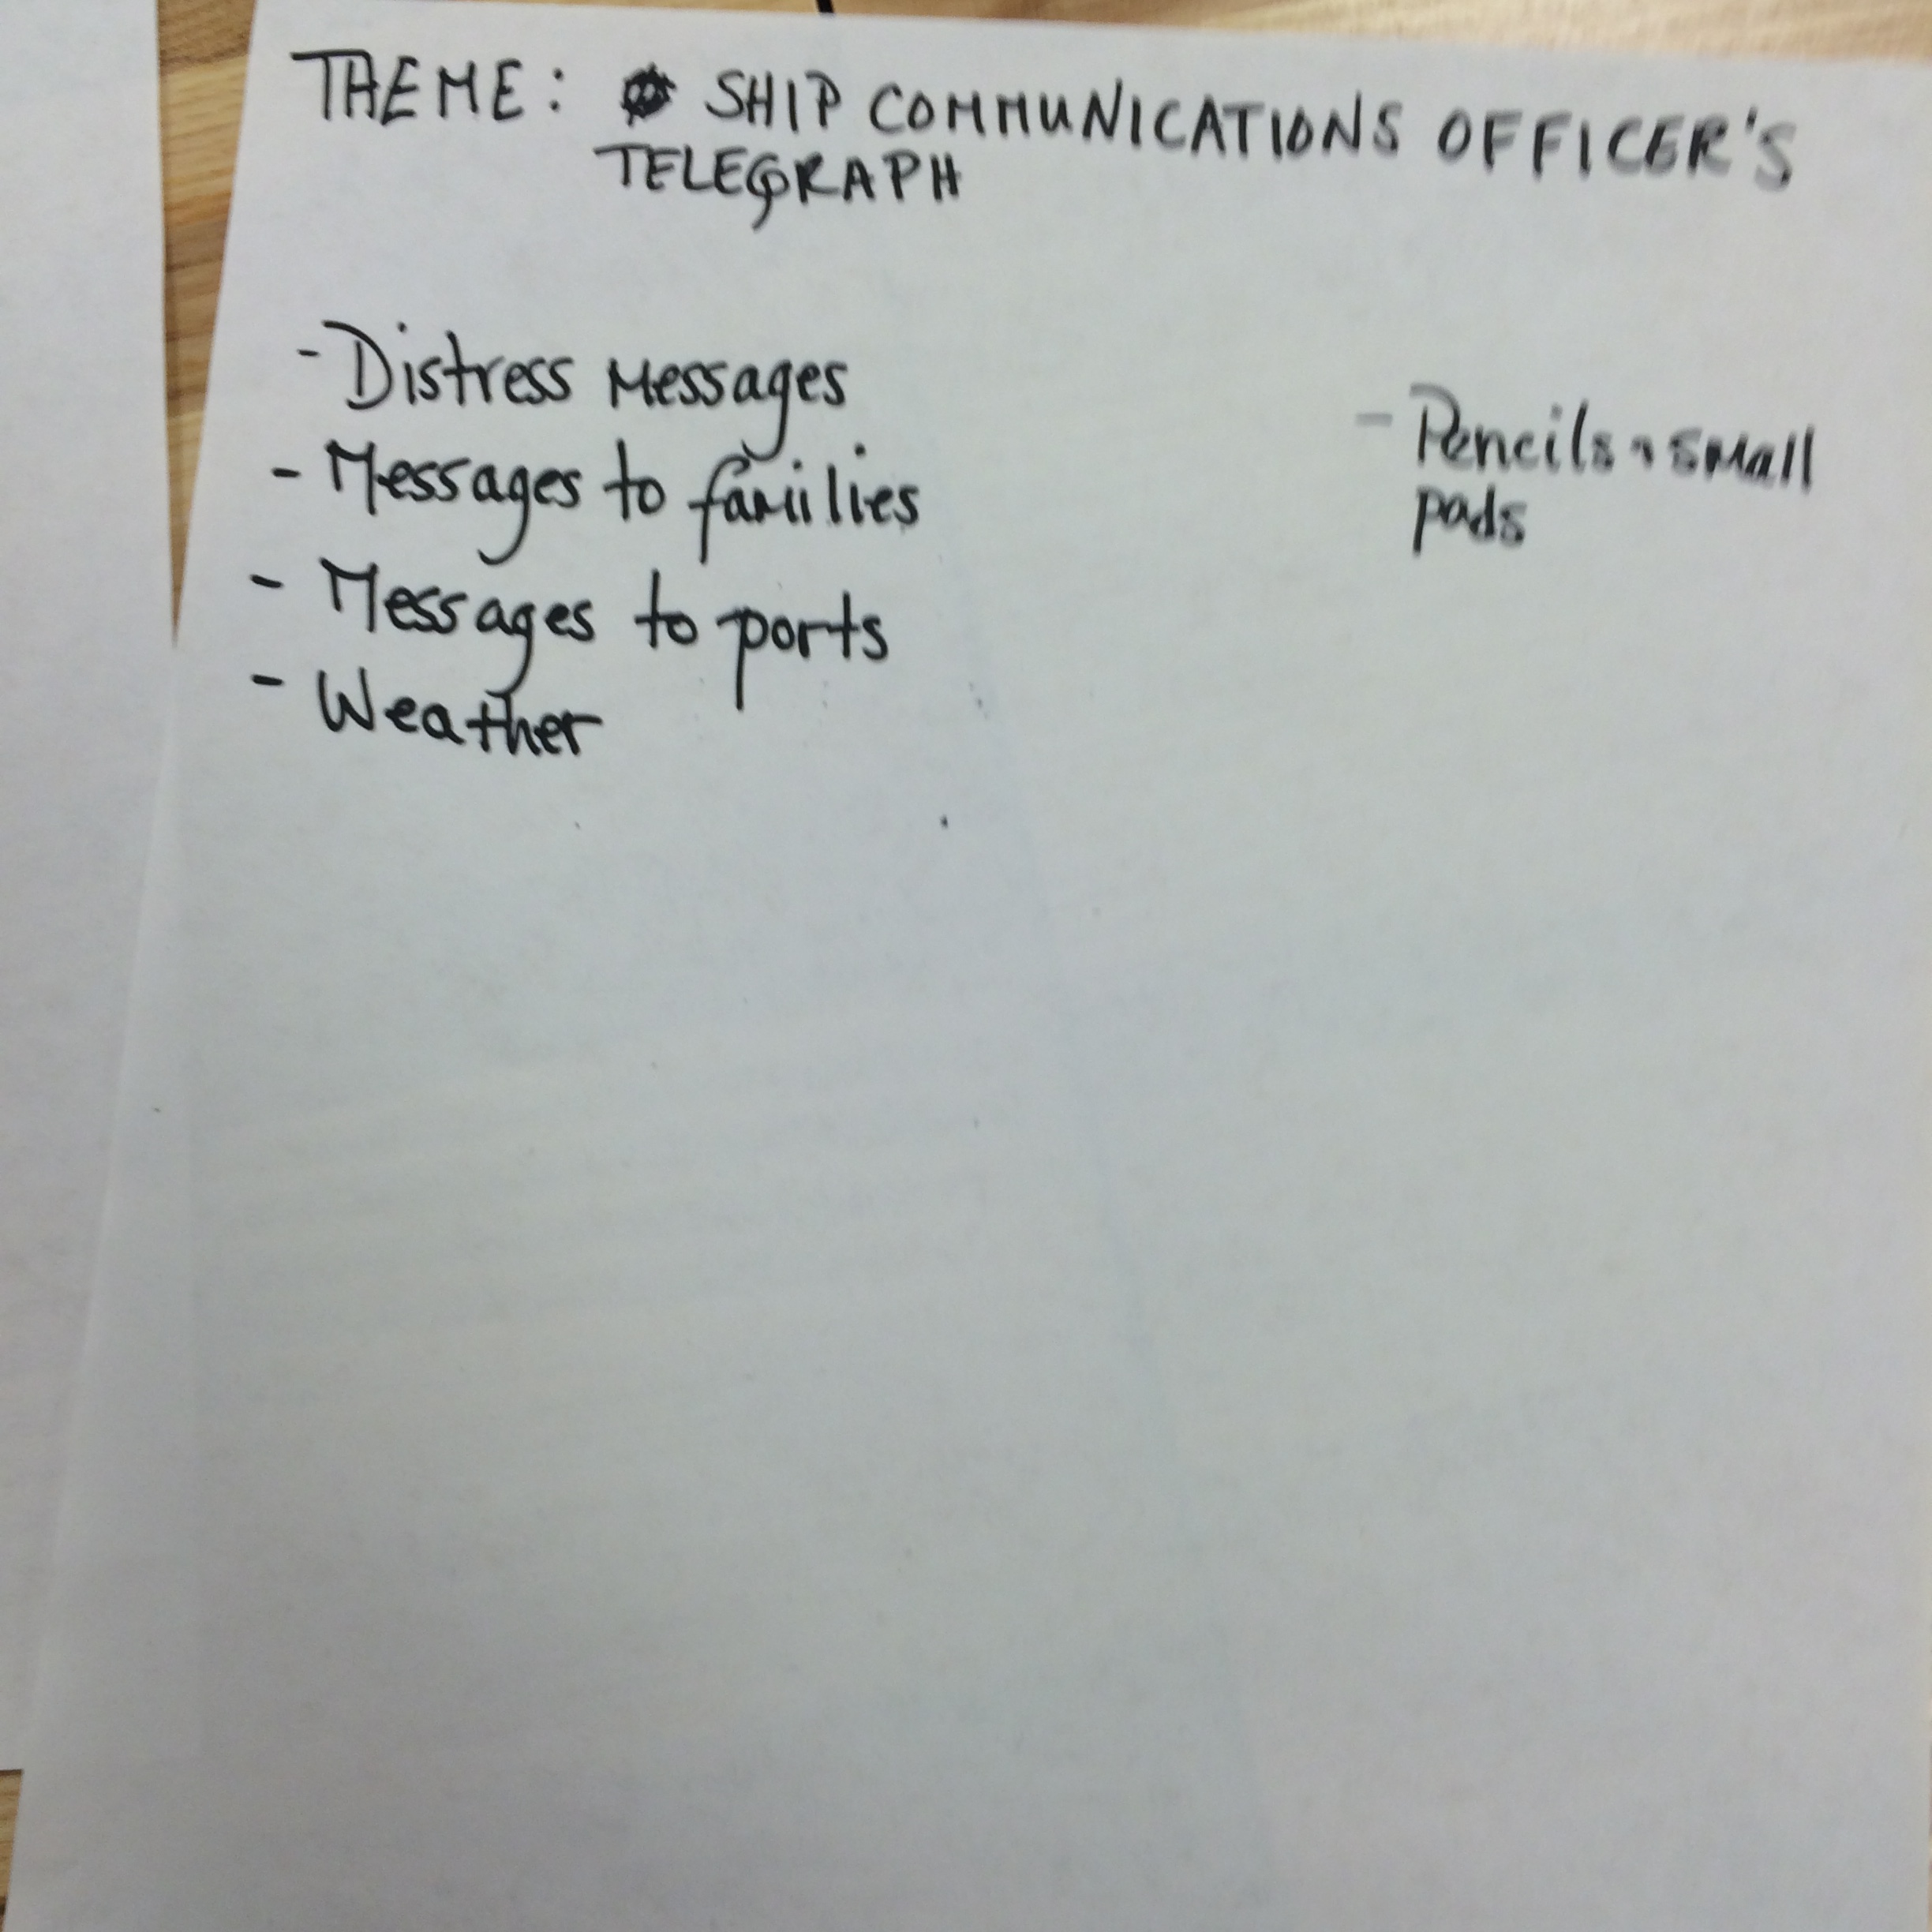 THEME: SHIP COMMUNICATIONS OFFICER'S
TELEGRAPH
- Distress Messages
- Messages to families
- Messages to ports
- Weather
- Pencils + small
pads